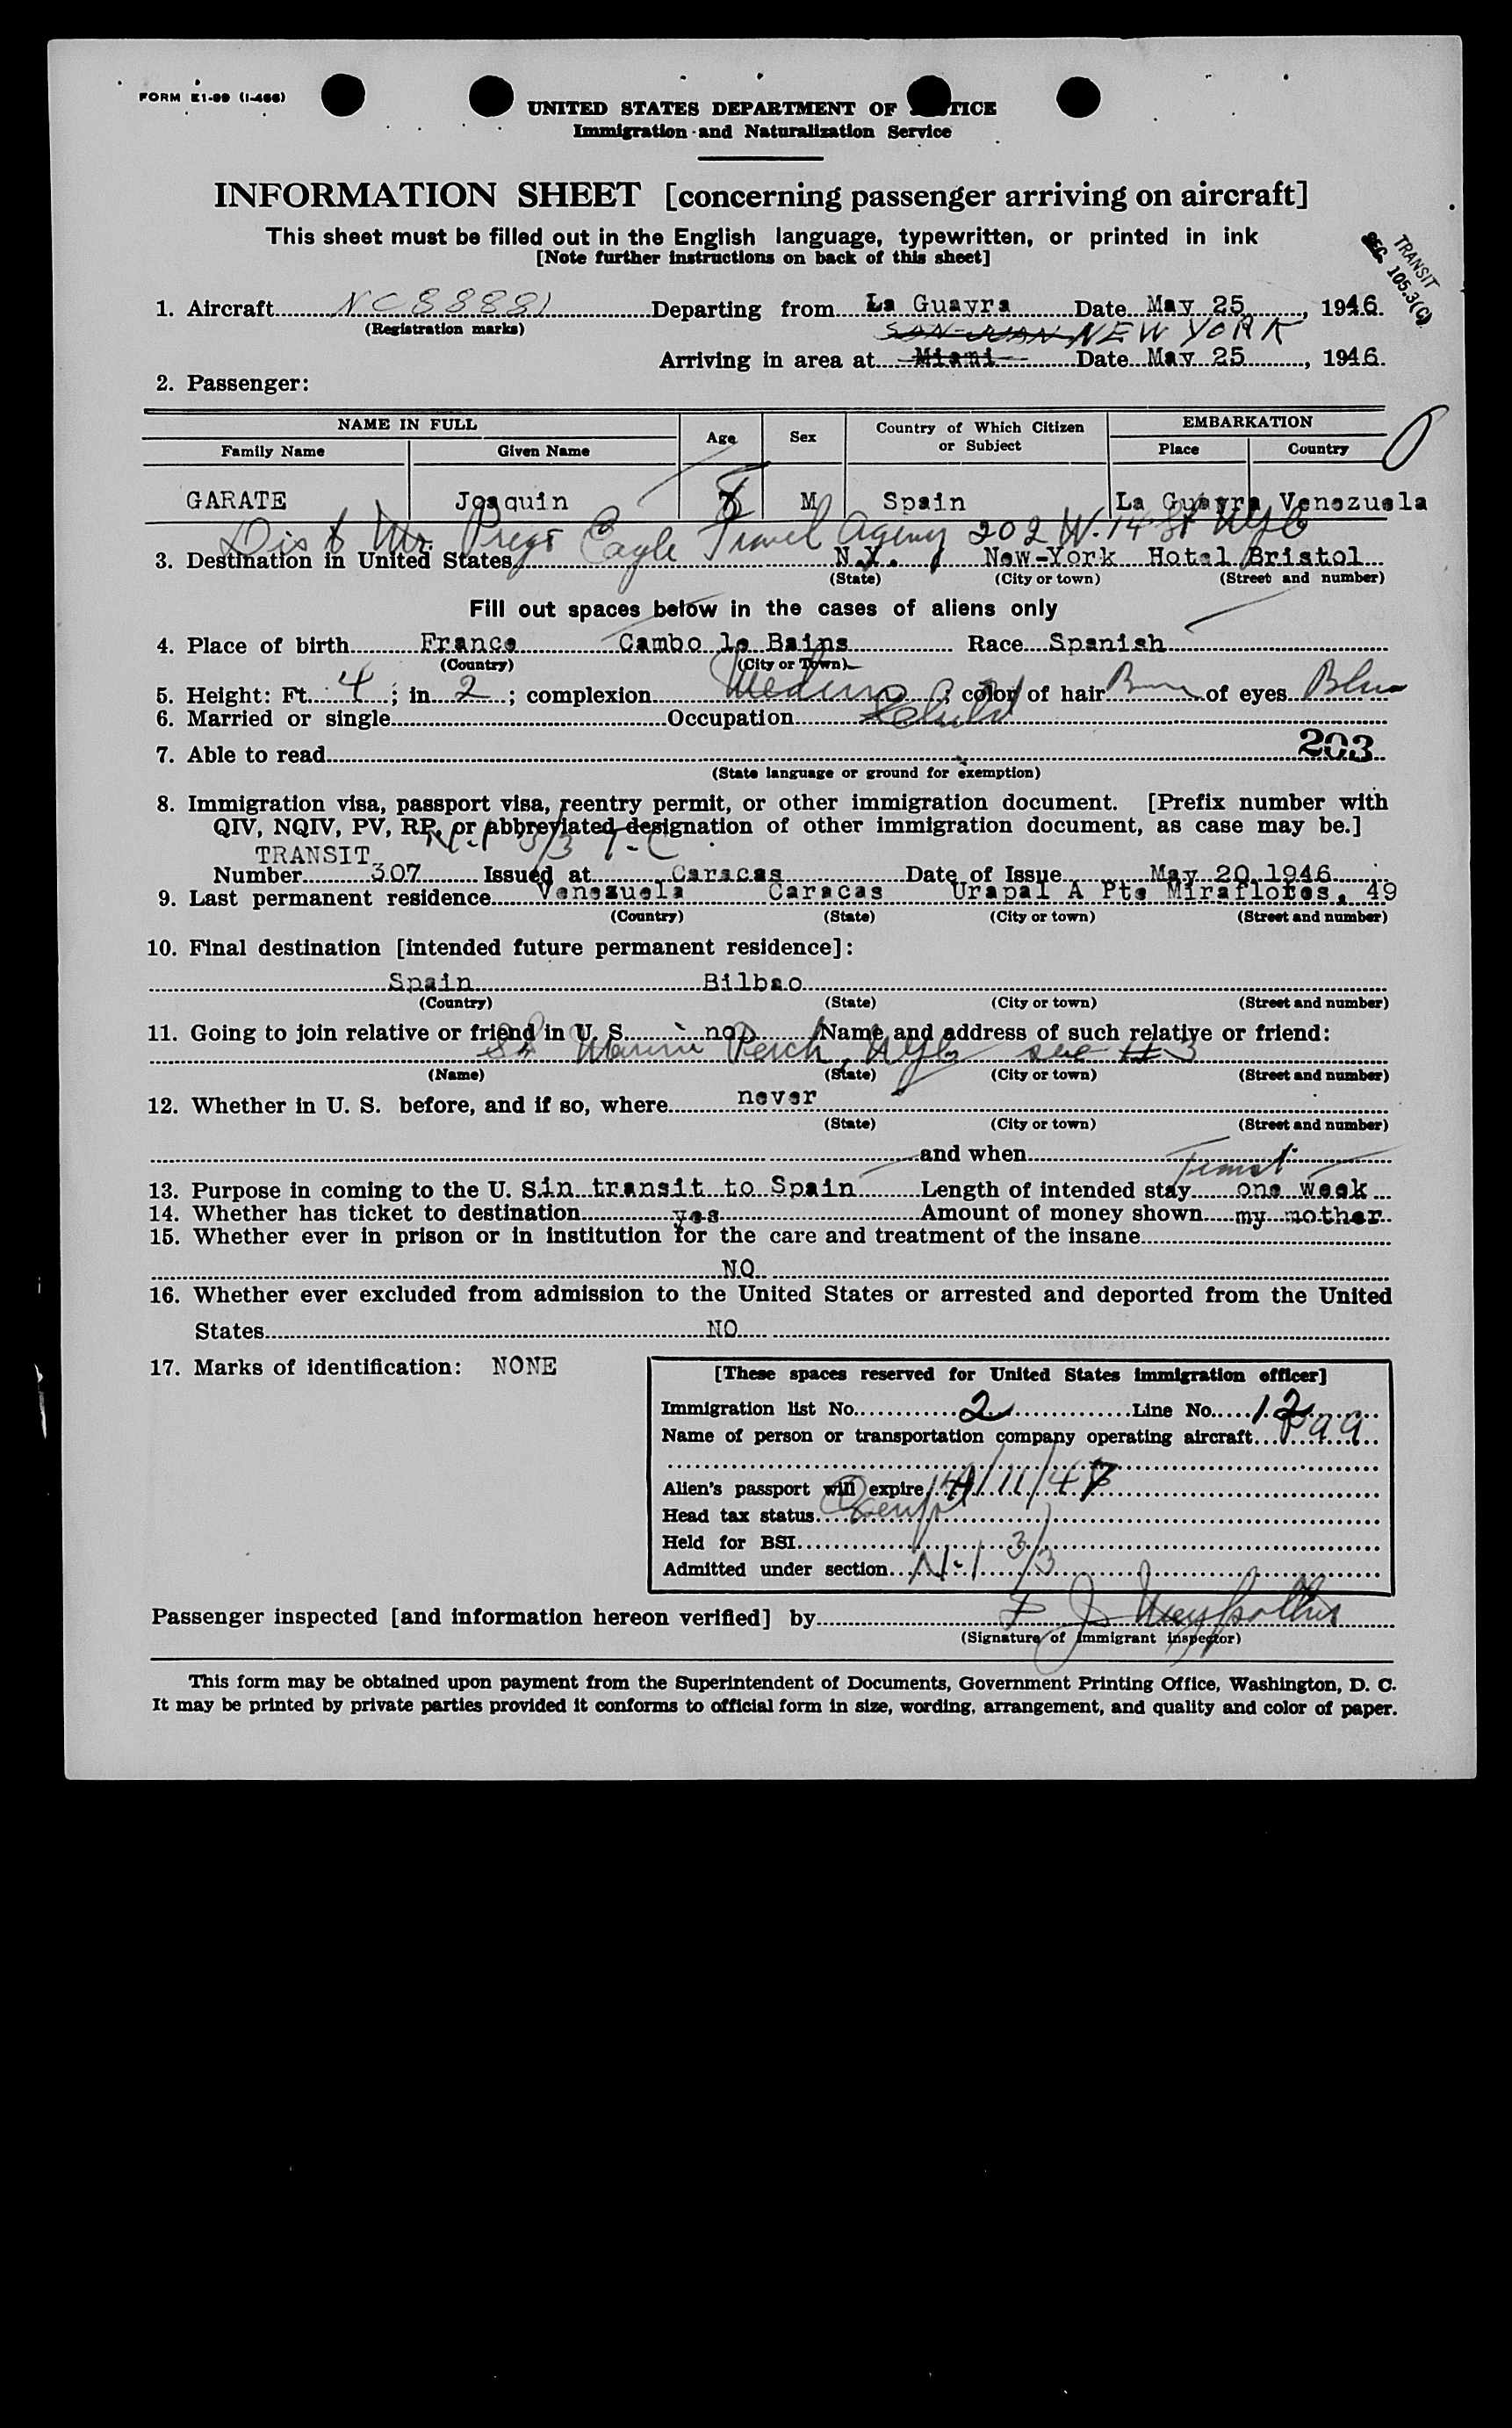 FORM E1-99 (I-466)
UNITED STATES DEPARTMENT OF TICE
Immigration and Naturalization Service
INFORMATION SHEET [concerning passenger arriving on aircraft]
This sheet must be filled out in the English language, typewritten, or printed in ink
[Note further instructions on back of this sheet]
TRANSIT
SEC. 105.3(C)
1. Aircraft NC88881 Departing from La Guayra Date May 25, 1946.
(Registration marks)
SAN JUAN NEW YORK
Arriving in area at Miami Date May 25, 1946.
2. Passenger:
NAME IN FULL Age Sex Country of Which Citizen or Subject EMBARKATION
Family Name Given Name Place Country
GARATE Joaquin 8 M Spain La Guayra Venezuela
Eagle Travel Agency 202 W. 14 St NYC
3. Destination in United States N.Y. New-York Hotel Bristol
(State) (City or town) (Street and number)
Fill out spaces below in the cases of aliens only
4. Place of birth France Cambo le Bains Race Spanish
(Country) (City or Town)
5. Height: Ft. 4; in. 2; complexion Medium; color of hair of eyes Blue
6. Married or single Occupation Child
203
7. Able to read
(State language or ground for exemption)
8. Immigration visa, passport visa, reentry permit, or other immigration document. [Prefix number with
QIV, NQIV, PV, RP, or abbreviated designation of other immigration document, as case may be.]
3/3 T-C
TRANSIT
Number 307 Issued at Caracas Date of Issue May 20, 1946
9. Last permanent residence Venezuela Caracas Urapal A Pte Miraflores, 49
(Country) (State) (City or town) (Street and number)
10. Final destination [intended future permanent residence]:
Spain Bilbao
(Country) (State) (City or town) (Street and number)
11. Going to join relative or friend in U. S. no Name and address of such relative or friend:
NYC see #3
(Name) (State) (City or town) (Street and number)
12. Whether in U. S. before, and if so, where never
(State) (City or town) (Street and number)
and when
13. Purpose in coming to the U. S. in transit to Spain Length of intended stay one week
14. Whether has ticket to destination yes Amount of money shown my mother
15. Whether ever in prison or in institution for the care and treatment of the insane
NO
16. Whether ever excluded from admission to the United States or arrested and deported from the United
States NO
17. Marks of identification: NONE
[These spaces reserved for United States immigration officer]
Immigration list No. 2 Line No. 12
Name of person or transportation company operating aircraft Paa
Alien's passport will expire
Head tax status Exempt
Held for BSI
Admitted under section 3/3
Passenger inspected [and information hereon verified] by
(Signature of Immigrant inspector)
This form may be obtained upon payment from the Superintendent of Documents, Government Printing Office, Washington, D. C.
It may be printed by private parties provided it conforms to official form in size, wording, arrangement, and quality and color of paper.